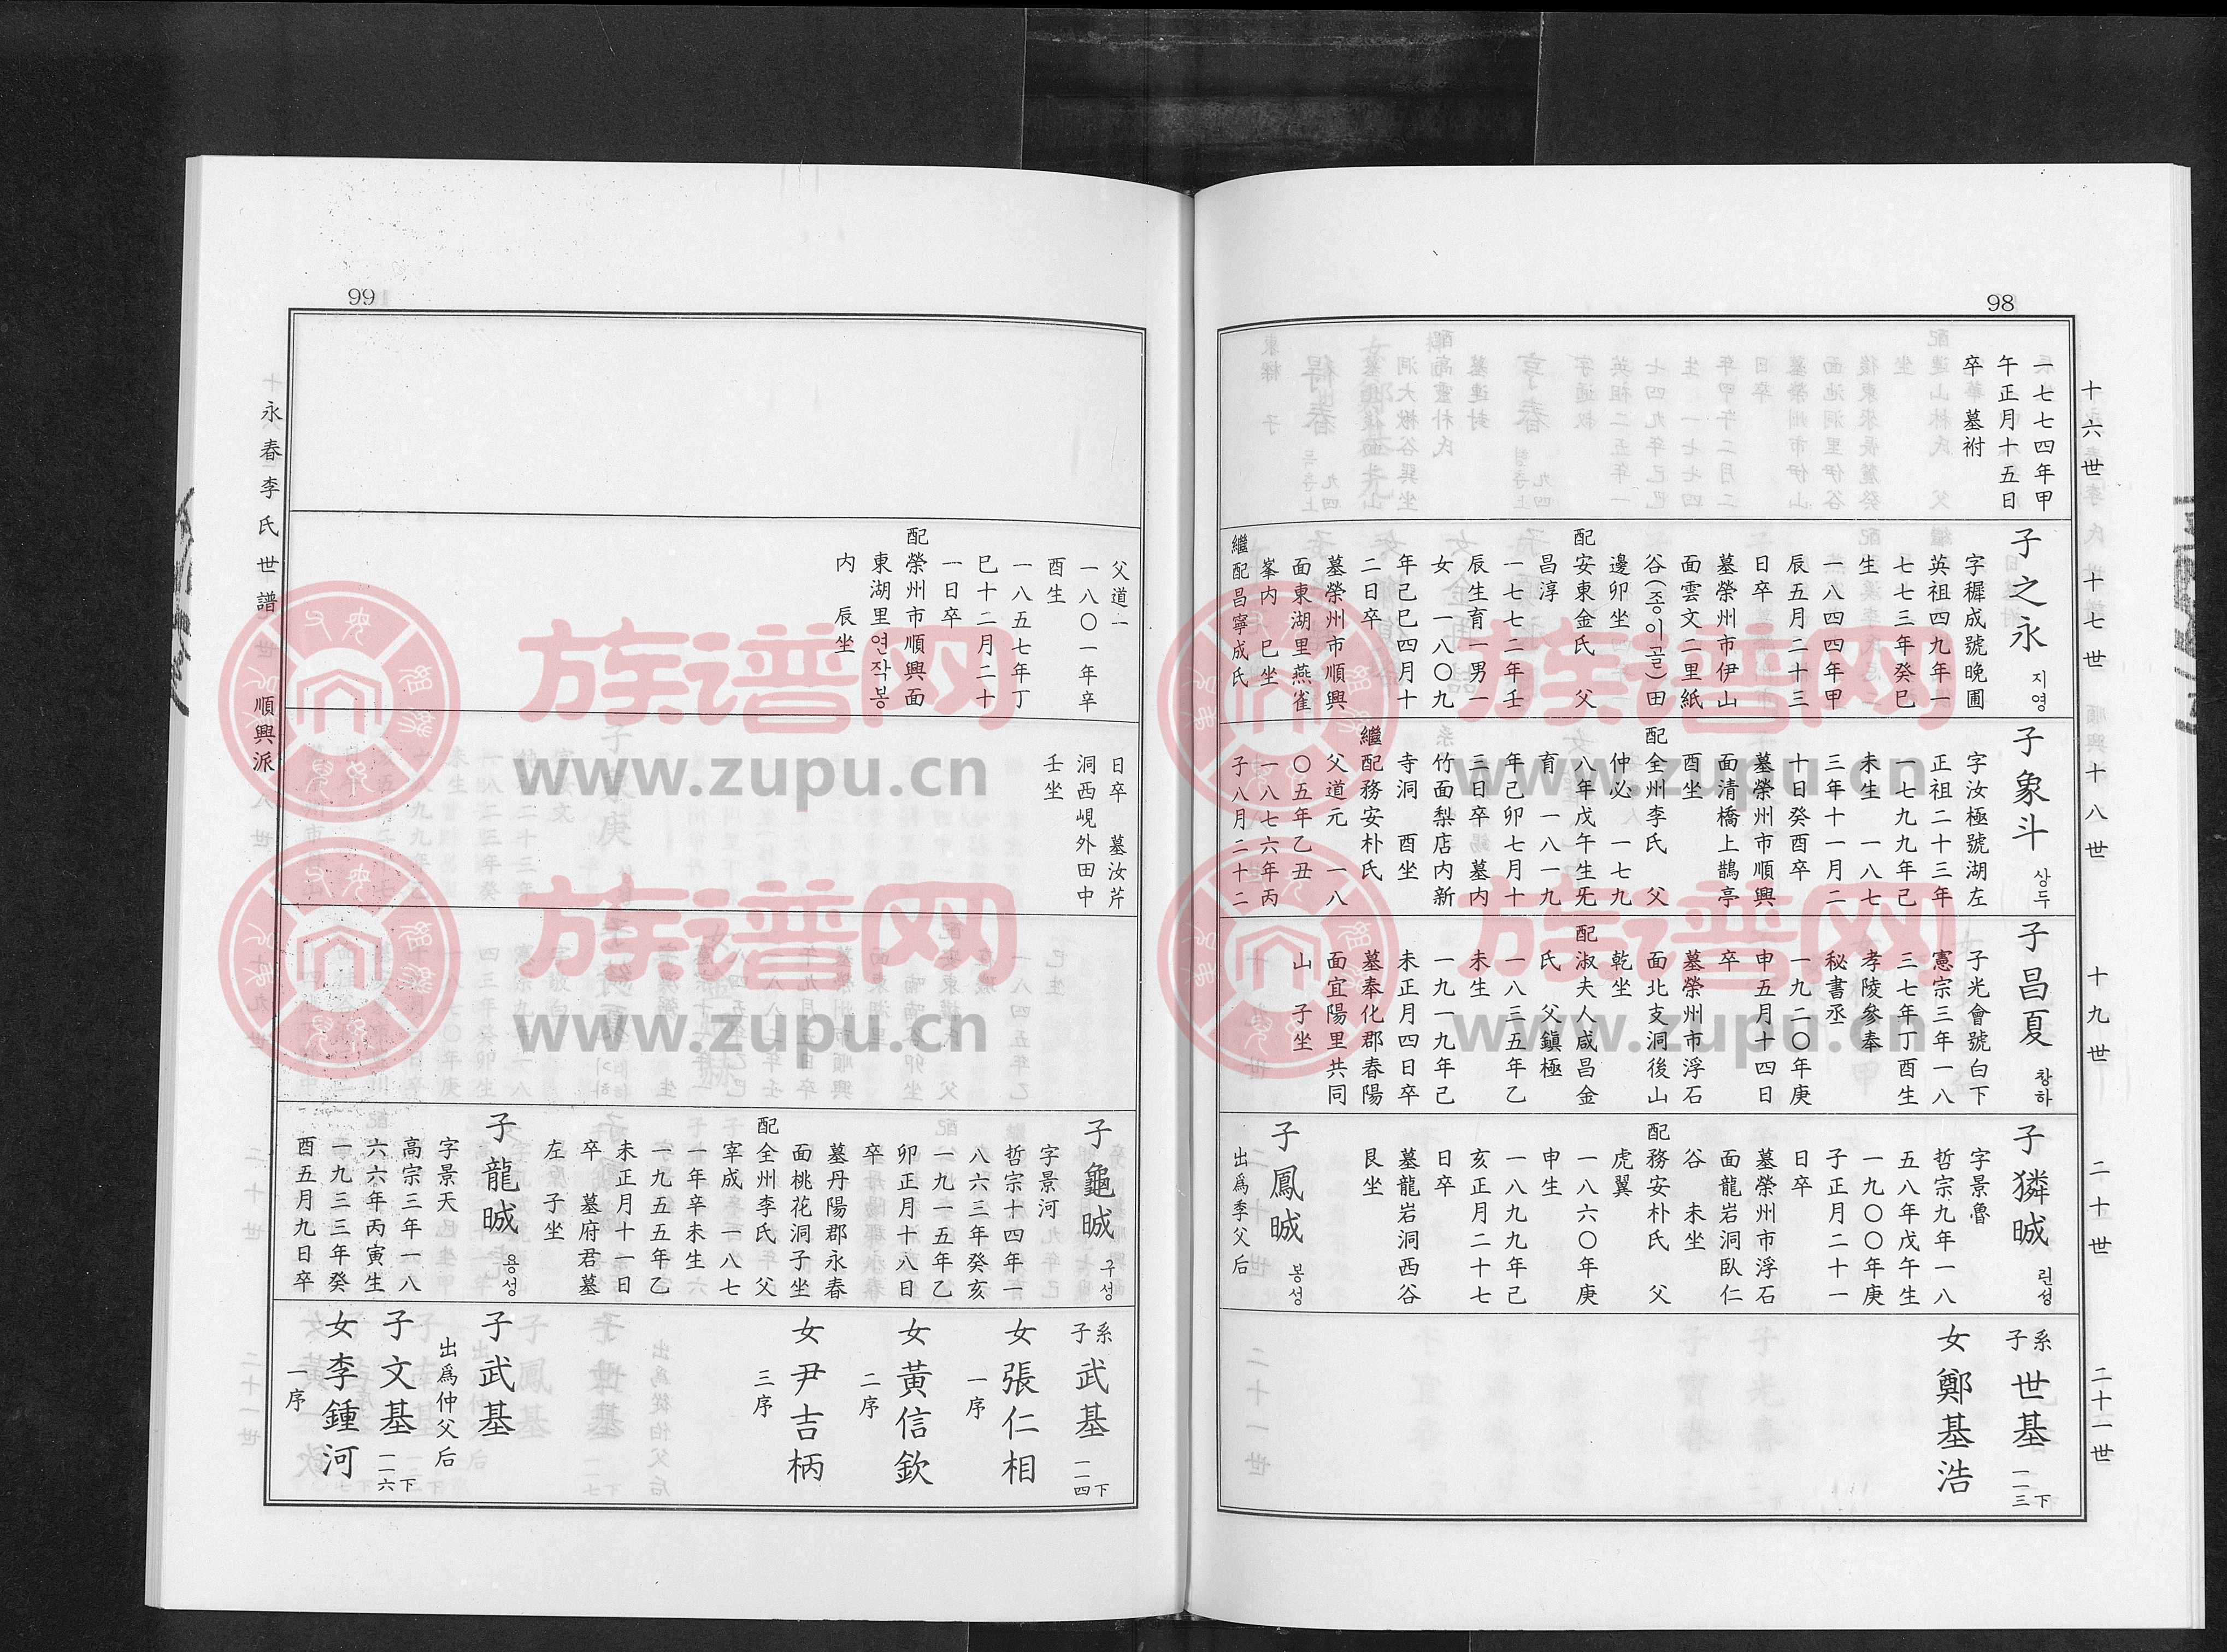 98
十六世
十七世
十八世
十九世
二十世
二十一世
一七七四年甲
午正月十五日
卒 墓祔
子之永 지영
字穉成號晚圃
英祖四九年一
七七三年癸巳
生
一八四四年甲
辰五月二十三
日卒
墓榮州市伊山
面雲文二里紙
谷(종이골)田
邊卯坐
配安東金氏 父
昌淳
一七七二年壬
辰生育一男一
女 一八〇九
年己巳四月十
二日卒
墓榮州市順興
面東湖里燕雀
峯内 巳坐
繼配昌寧成氏
子象斗 상두
字汝極號湖左
正祖二十三年
一七九九年己
未生 一八七
三年十一月二
十日癸酉卒
墓榮州市順興
面清橋上鵲亭
酉坐
配全州李氏 父
仲必 一七九
八年戊午生旡
育 一八一九
年己卯七月十
三日卒 墓内
竹面梨店内新
寺洞 酉坐
繼配務安朴氏
父道元 一八
〇五年乙丑
一八七六年丙
子八月二十二
子昌夏 창하
子光會號白下
憲宗三年一八
三七年丁酉生
孝陵參奉
秘書丞
一九二〇年庚
申五月十四日
卒
墓榮州市浮石
面北支洞後山
乾坐
配淑夫人咸昌金
氏 父鎭極
一八三五年乙
未生
一九一九年己
未正月四日卒
墓奉化郡春陽
面宜陽里共同
山 子坐
子獜晠 린성
字景魯
哲宗九年一八
五八年戊午生
一九〇〇年庚
子正月二十一
日卒
墓榮州市浮石
面龍岩洞臥仁
谷 未坐
配務安朴氏 父
虎翼
一八六〇年庚
申生
一八九九年己
亥正月二十七
日卒
墓龍岩洞西谷
艮坐
子鳳晠 봉성
出爲季父后
系子世基 下一一三
女鄭基浩
99
永春李氏世譜 順興派
父道一
一八〇一年辛
酉生
一八五七年丁
巳十二月二十
一日卒
配榮州市順興面
東湖里연작봉
内 辰坐
日卒 墓汝芹
洞西峴外田中
壬坐
子龜晠 구성
字景河
哲宗十四年一
八六三年癸亥
一九一五年乙
卯正月十八日
卒
墓丹陽郡永春
面桃花洞子坐
配全州李氏 父
宰成 一八七
一年辛未生
一九五五年乙
未正月十一日
卒 墓府君墓
左 子坐
子龍晠 용성
字景天
高宗三年一八
六六年丙寅生
一九三三年癸
酉五月九日卒
系子武基 下一一四
女張仁相
一序
女黃信欽
二序
女尹吉柄
三序
子武基
出爲仲父后
子文基 下一一六
女李鍾河
一序
族谱网
www.zupu.cn
族谱网
www.zupu.cn
族谱网
www.zupu.cn
族谱网
www.zupu.cn